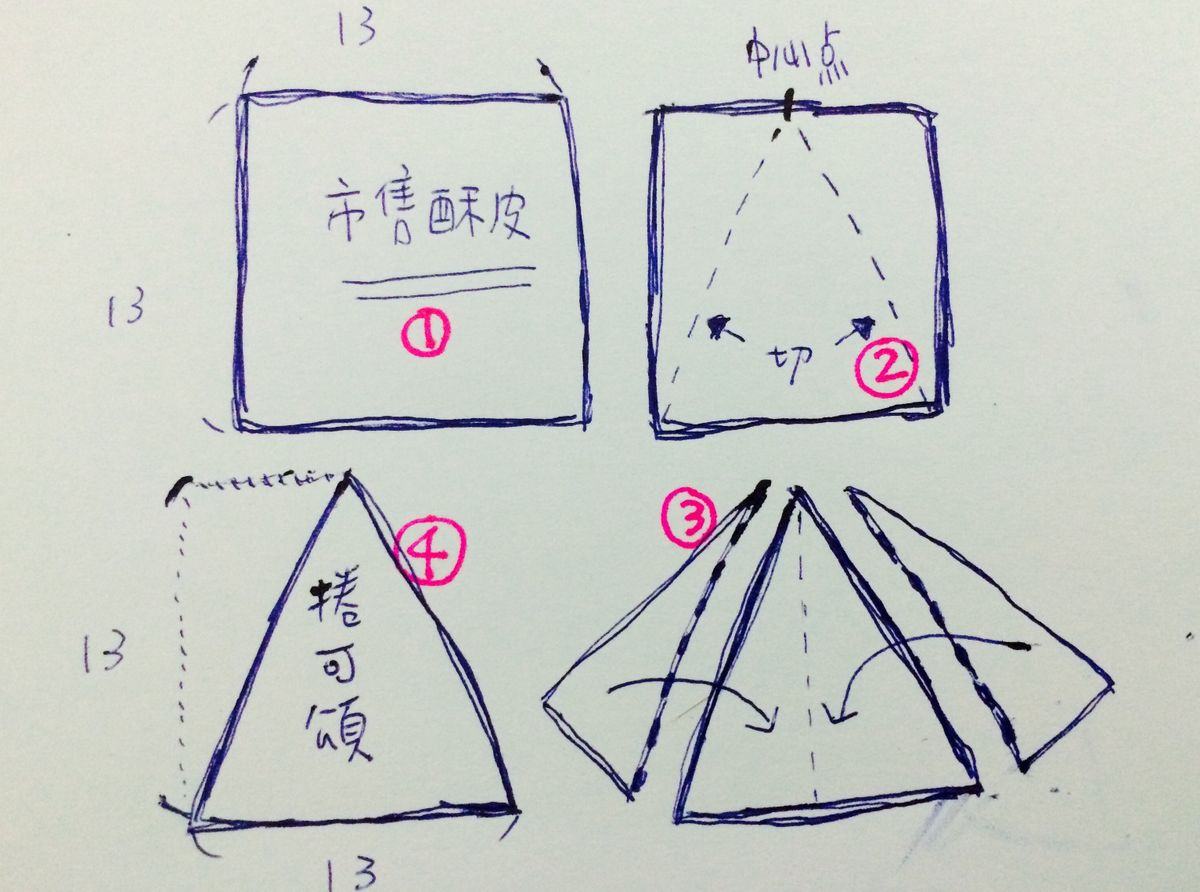 13
中心点
市售酥皮
13
①
切
②
③
④
13
捲可頌
13